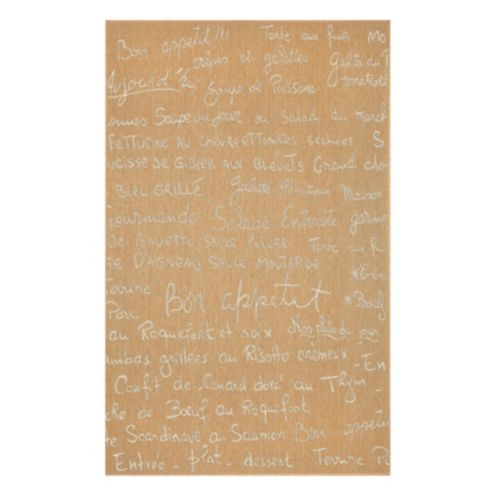 Bon appetit!!! Tarte aux fruits Mo
crêpes et galettes Galette au T
Aujourd'
Soupe de Poissons
Soupe du jour ou Salade du march
FETTUCINE AU CHÈVRE ET TOMATES SÉCHÉES S
UCISSE DE GIBIER AUX BLEUETS Grand cho
BLEU GRILLÉ Galette Maison
Gourmande Salade Entrecôte
DE BAVETTE SAUCE POIVRE Tarte au Fr
TE D'AGNEAU SAUCE MOUTARDE
Terrine Bon appetit *Boeuf
Porc
au Roquefort et noix Nos plats du jour
ambas grillées au Risotto crémeux - En
Confit de Canard doré au Thym -
che de Boeuf au Roquefort
te Scandinave au Saumon Bon appetit
Entrée - plat - dessert Terrine Po